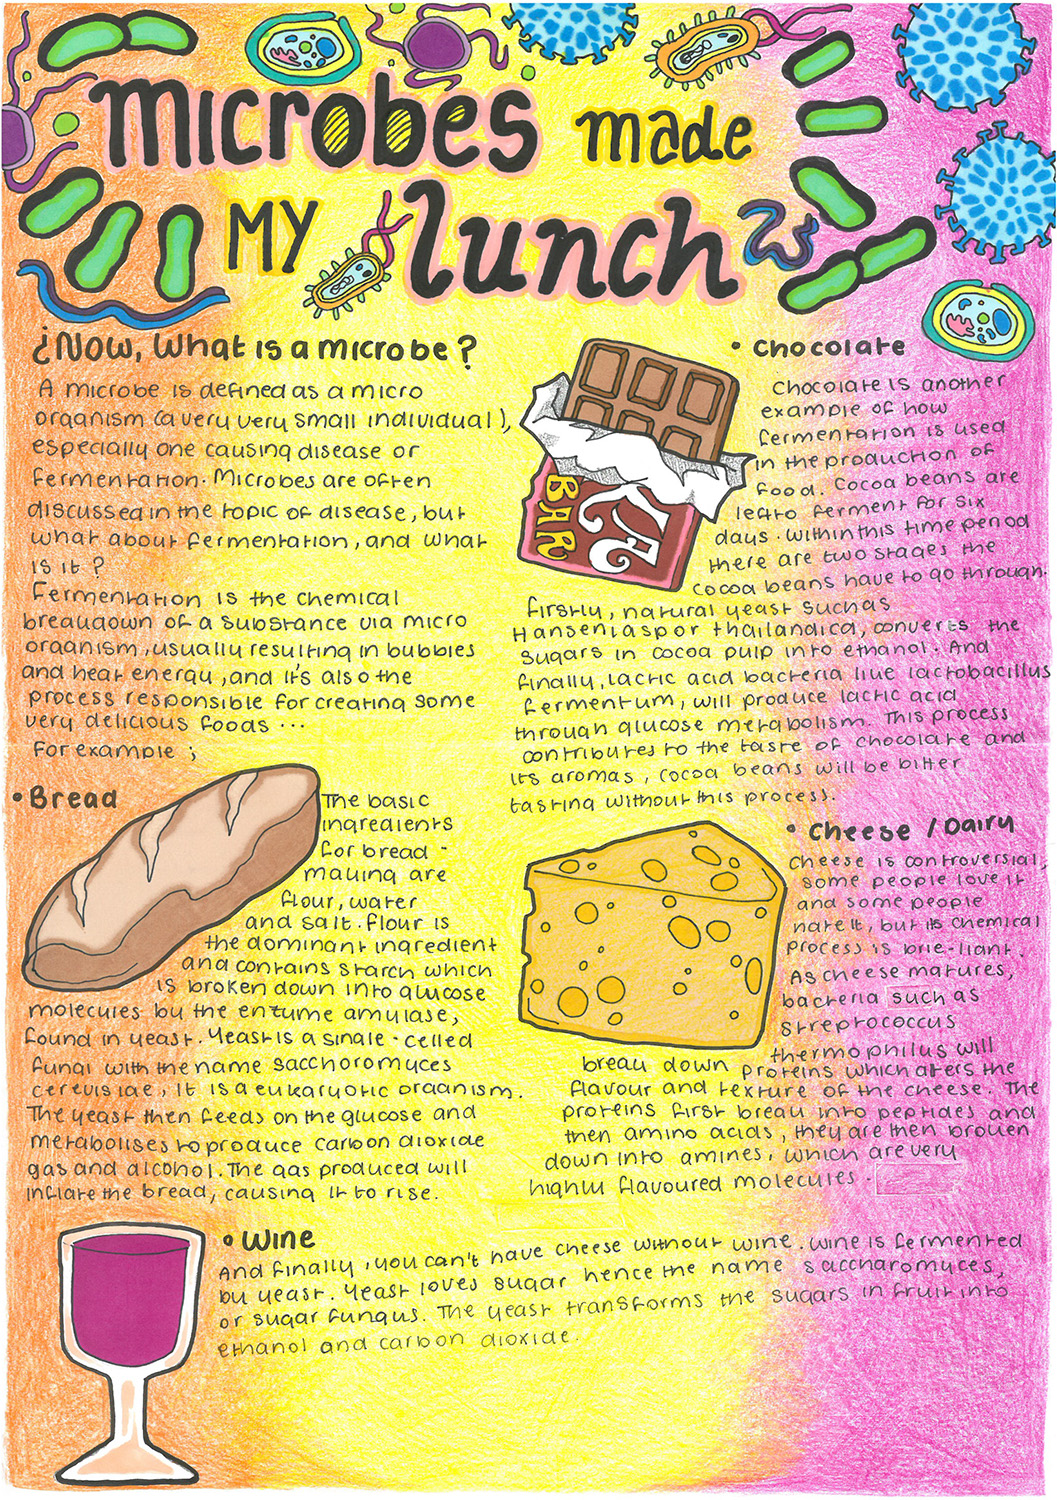 microbes made
MY lunch
¿Now, What is a microbe?
A microbe is defined as a micro
organism (a very very small individual),
especially one causing disease or
fermentation. Microbes are often
discussed in the topic of disease, but
what about fermentation, and what
is it?
Fermentation is the chemical
breakdown of a substance via micro
organism, usually resulting in bubbles
and heat energy, and it's also the
process responsible for creating some
very delicious foods ...
For example ;
• Bread
The basic
ingredients
for bread -
making are
flour, water
and salt. Flour is
the dominant ingredient
and contains starch which
is broken down into glucose
molecules by the enzyme amylase,
found in yeast. Yeast is a single-celled
fungi with the name saccharomyces
cerevisiae, it is a eukaryotic organism.
The yeast then feeds on the glucose and
metabolises to produce carbon dioxide
gas and alcohol. The gas produced will
inflate the bread, causing it to rise.
BAR
• Chocolate
Chocolate is another
example of how
fermentation is used
in the production of
food. Cocoa beans are
left to ferment for six
days. Within this time period
there are two stages the
cocoa beans have to go through.
Firstly, natural yeast such as
Hanseniaspor thailandica, converts the
sugars in cocoa pulp into ethanol. And
finally, lactic acid bacteria like lactobacillus
fermentum, will produce lactic acid
through glucose metabolism. This process
contributes to the taste of chocolate and
its aromas, cocoa beans will be bitter
tasting without this process.
• Cheese / Dairy
Cheese is controversial,
some people love it
and some people
hate it, but its chemical
process is brie-liant.
As cheese matures,
bacteria such as
streptococcus
thermophilus will
break down proteins which alters the
flavour and texture of the cheese. The
proteins first break into peptides and
then amino acids, they are then broken
down into amines, which are very
highly flavoured molecules.
• Wine
And finally, you can't have cheese without wine. Wine is fermented
by yeast. Yeast loves sugar hence the name saccharomyces,
or sugar fungus. The yeast transforms the sugars in fruit into
ethanol and carbon dioxide.